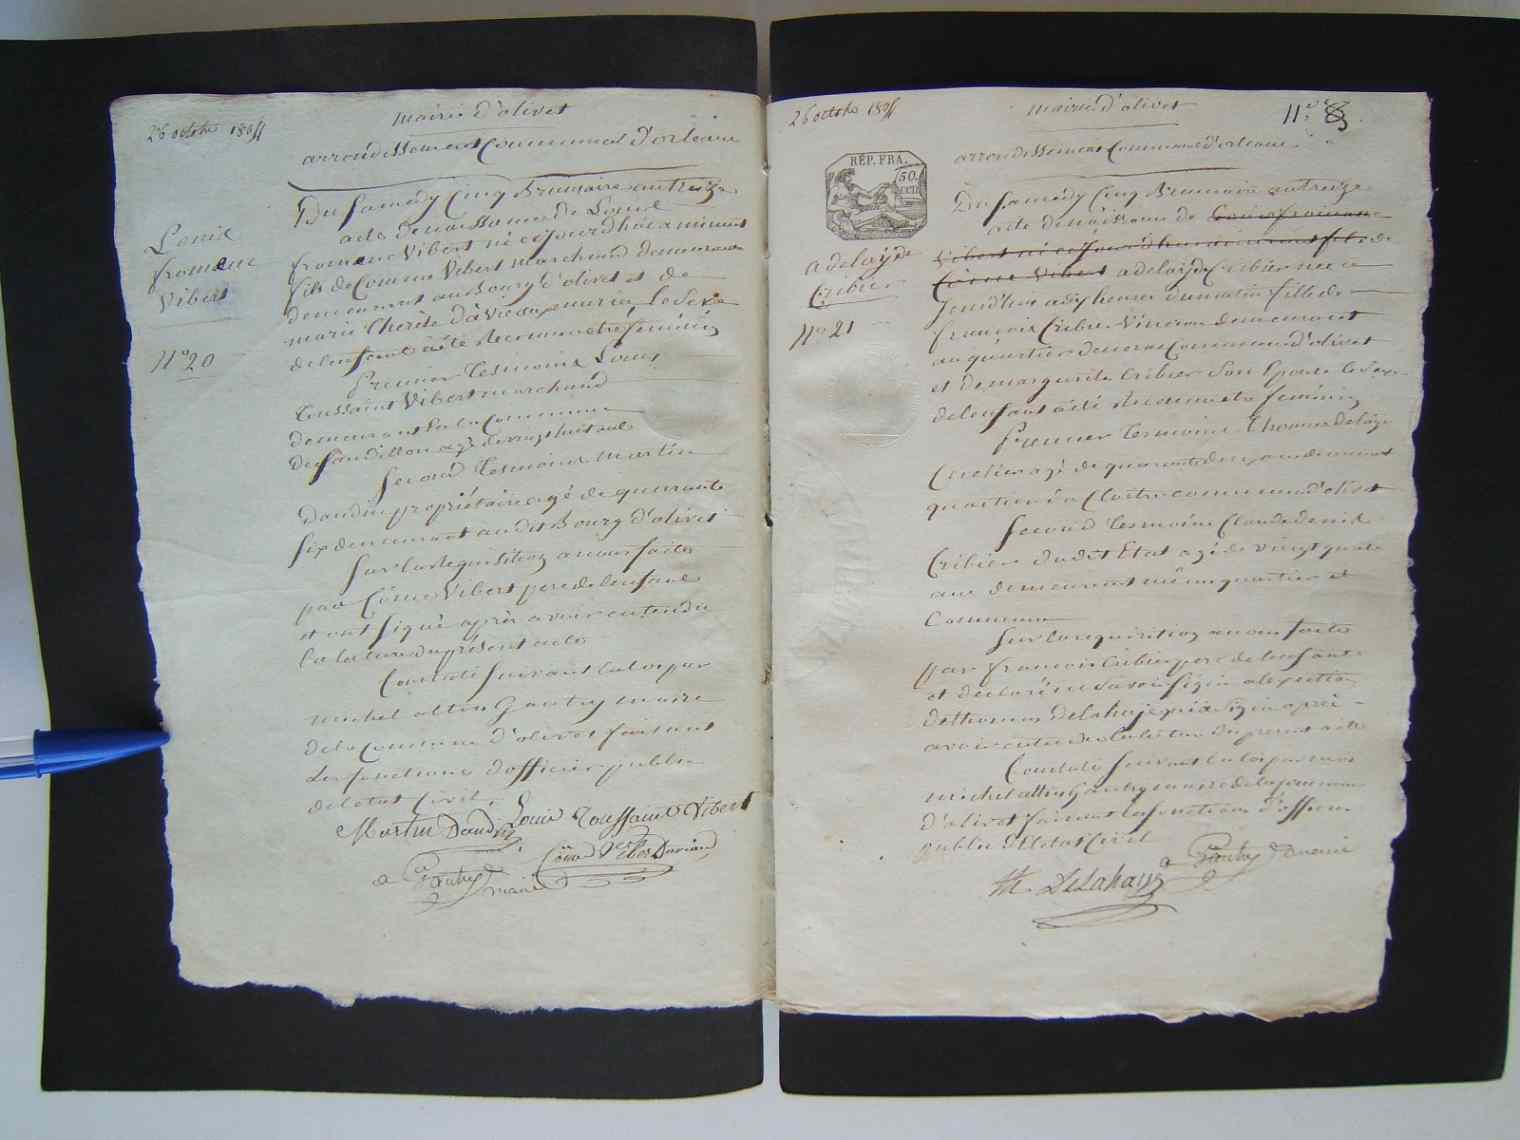 26 octobre 1804
mairie d'olivet
arrondissement Communal d'orleans
Du samedy Cinq Brumaire an treize
acte de naissance de Louis
fromene Vibert né ce jourd'hui a minuit
fils de Cosme Vibert marchand demeurant
demeurant au Bourg d'olivet et de
marie Therese
de lenfant a été reconnu etre feminin
Louis
fromene
Vibert
N° 20
Premier Tesmoins Louis
Toussaint Vibert marchand
demeurant en la Commune
de sandillon agé de vingt huit ans
Second Tesmoins martin
Daudin propriétaire agé de quarante
six demeurant audit Bourg d'olivet
Sur la requisition a nous faite
par Cosme Vibert pere de lenfant
et ont signé après avoir entendu
la lecture du présent acte
Constaté suivant la loi par
michel attin Gautry maire
de la Commune d'olivet faisant
les fonctions d'officier public
de letat Civil.
Martin Daudin Louis Toussaint Vibert
Côme Vibert
a Gautry maire
26 octobre 1804
mairie d'olivet
arrondissement Communal d'orleans
REP. FRA.
50.
CEN.
Du samedy Cinq Brumaire an treize
acte de naissance de Louis fromene
Vibert né ce jourd'hui a minuit fils de
Côme Vibert adelayde Cribier née ce
jourd'hui a dix heures du matin fille de
françois Cribier Vigneron demeurant
au quartier Commune d'olivet
et de marguerite Cribier son Epouse le sexe
de lenfant a été reconnu etre feminin
adelayde
Cribier
N° 21
Premier Tesmoins Thomas delahaye
agé de quarante demeurant
quartier commune d'olivet
Second Tesmoins Claude denis
Cribier dudit Etat agé de vingt quatre
ans demeurant même quartier et
Commune
Sur la requisition a nous faite
par francois Cribier pere de lenfant
et declaré ne savoir signer a lexception
de thomas delahaye qui a signé après
avoir entendu la lecture du present acte
Constaté suivant la loi par nous
michel attin Gautry maire de la commune
d'olivet faisant les fonctions d'officier
public de letat Civil
a Gautry maire
th. Delahaye